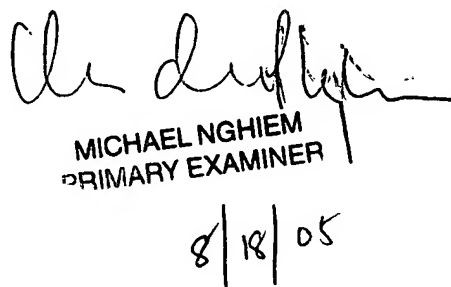 MICHAEL NGHIEM
PRIMARY EXAMINER
8/18/05